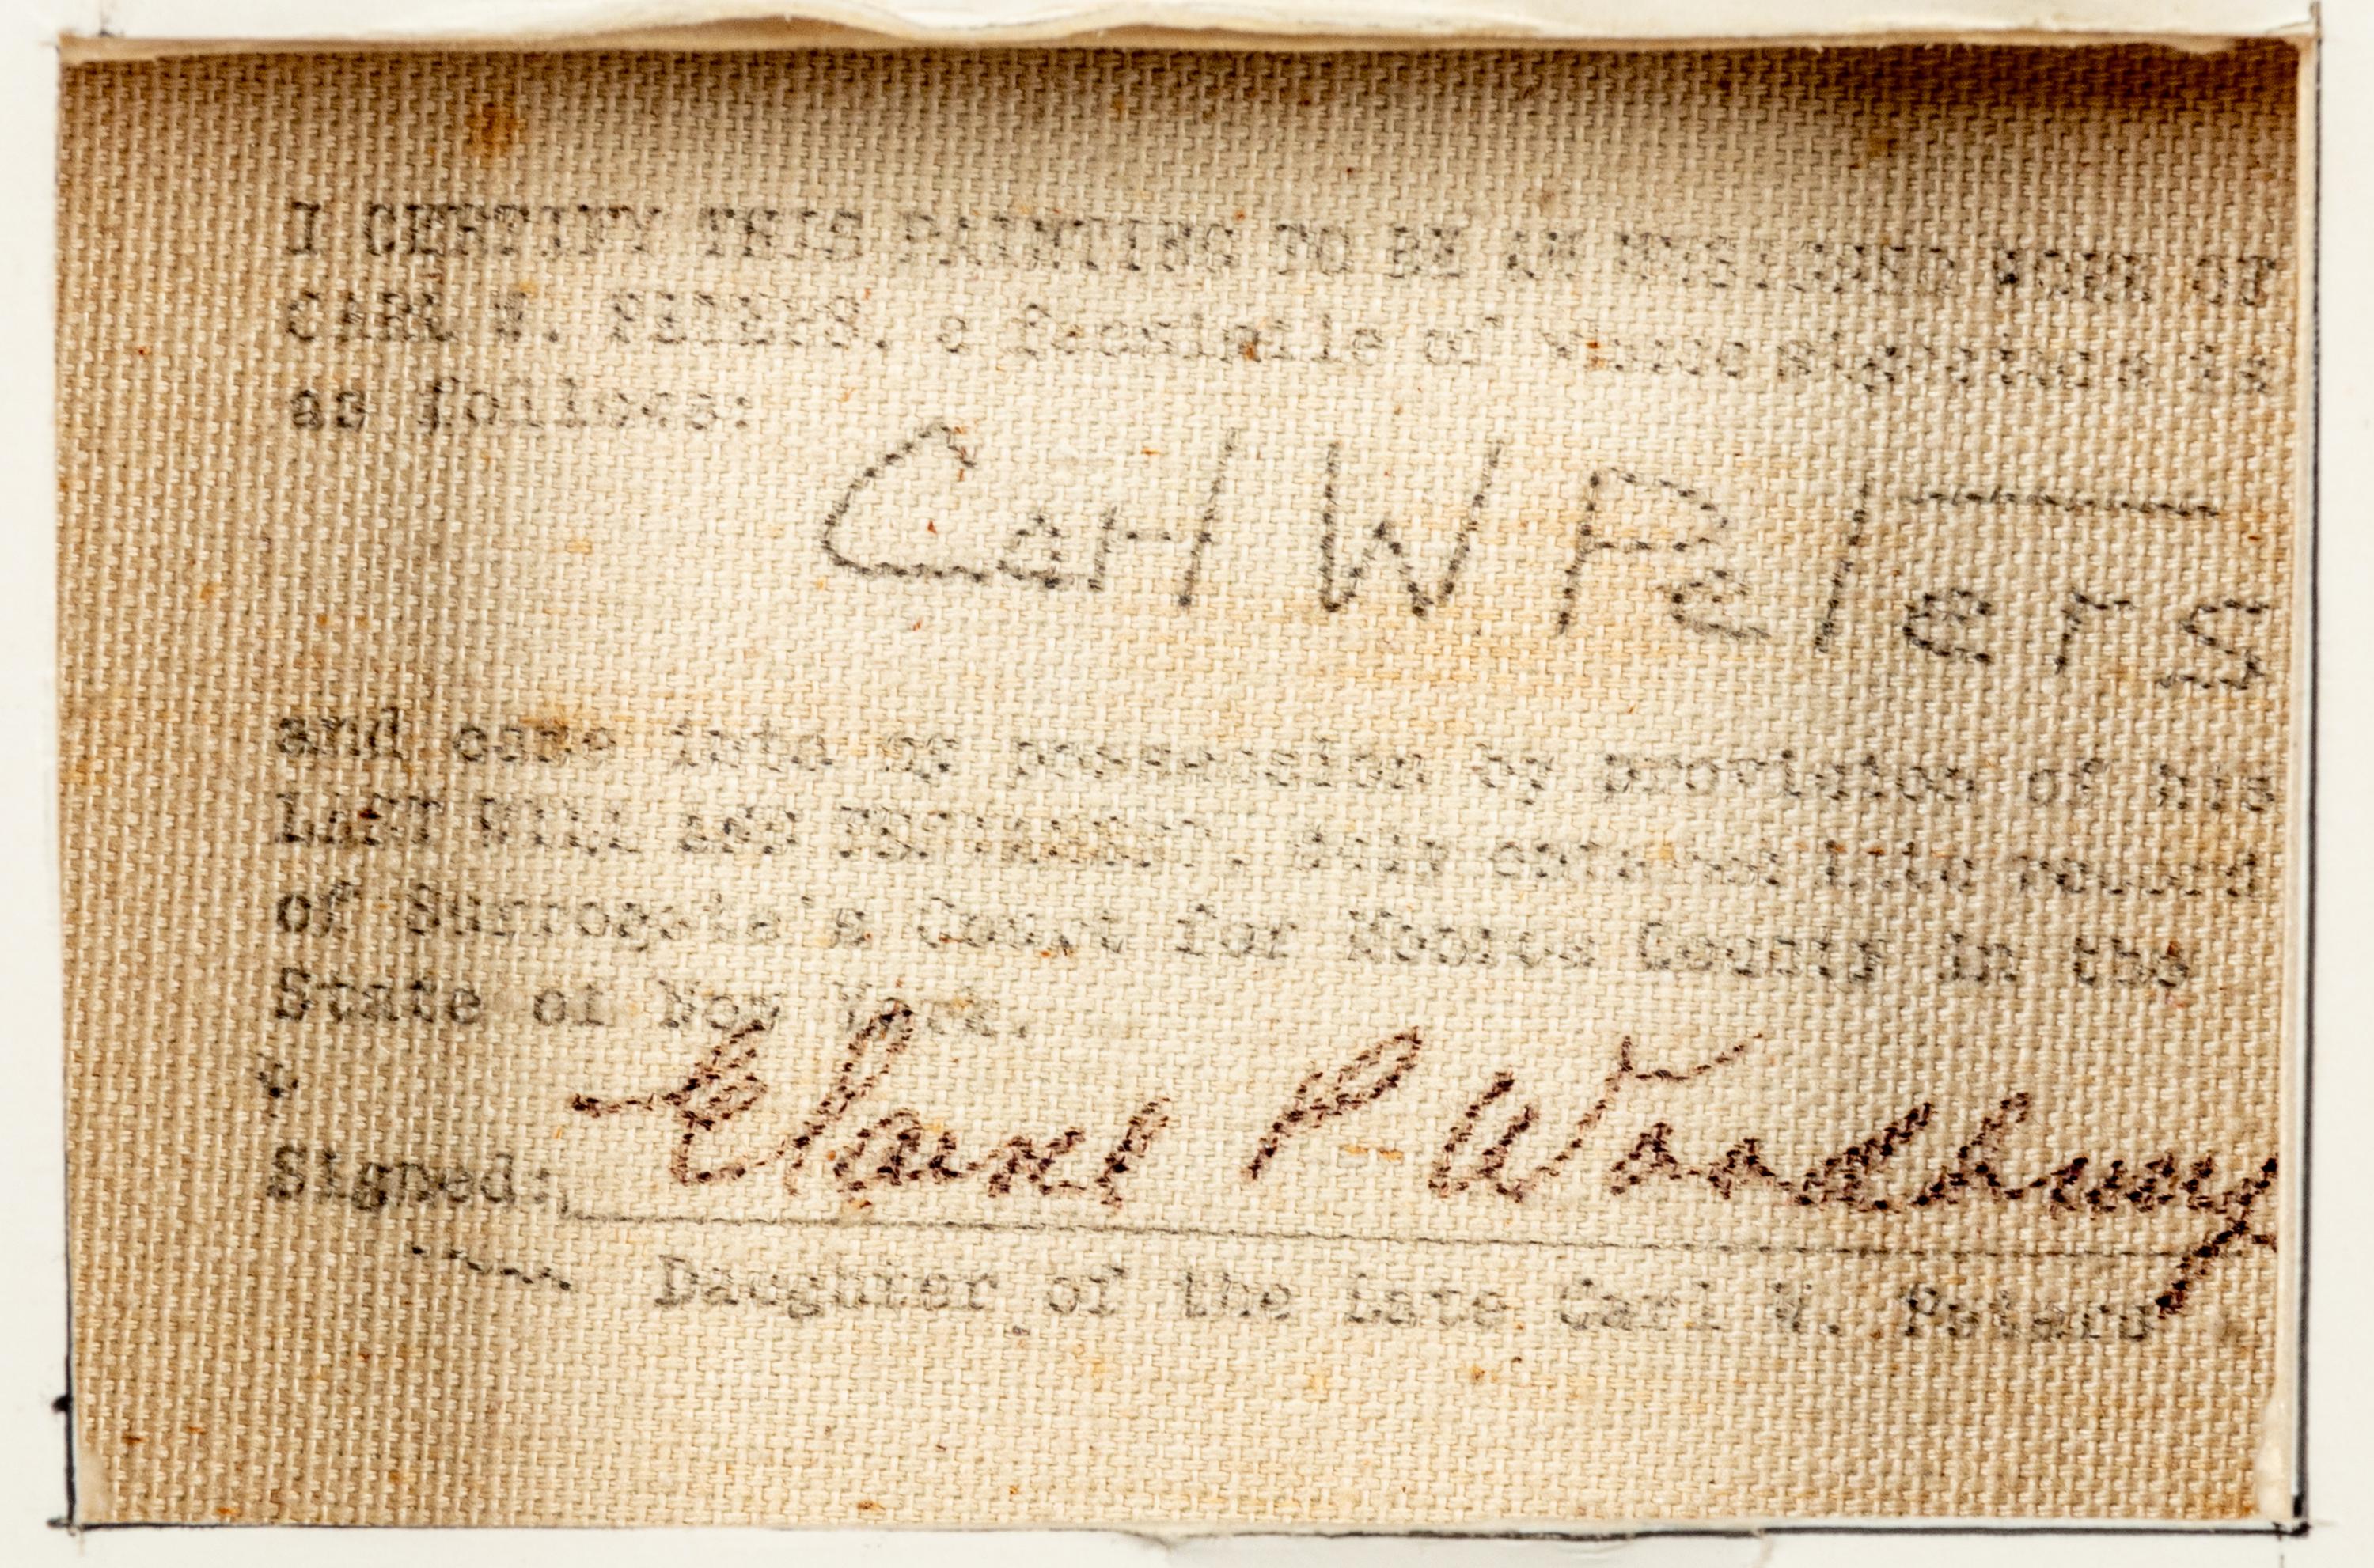 I CERTIFY THIS PAINTING TO BE AN UNSIGNED WORK OF
CARL W. PETERS, a facsimile of whose signature is
as follows:
Carl W Peters
and came into my possession by provision of his
LAST WILL AND TESTAMENT, duly entered into record
of Surrogate's Court for Monroe County in the
State of New York.
Signed: Elaine P. Woodbury
Daughter of the Late Carl W. Peters